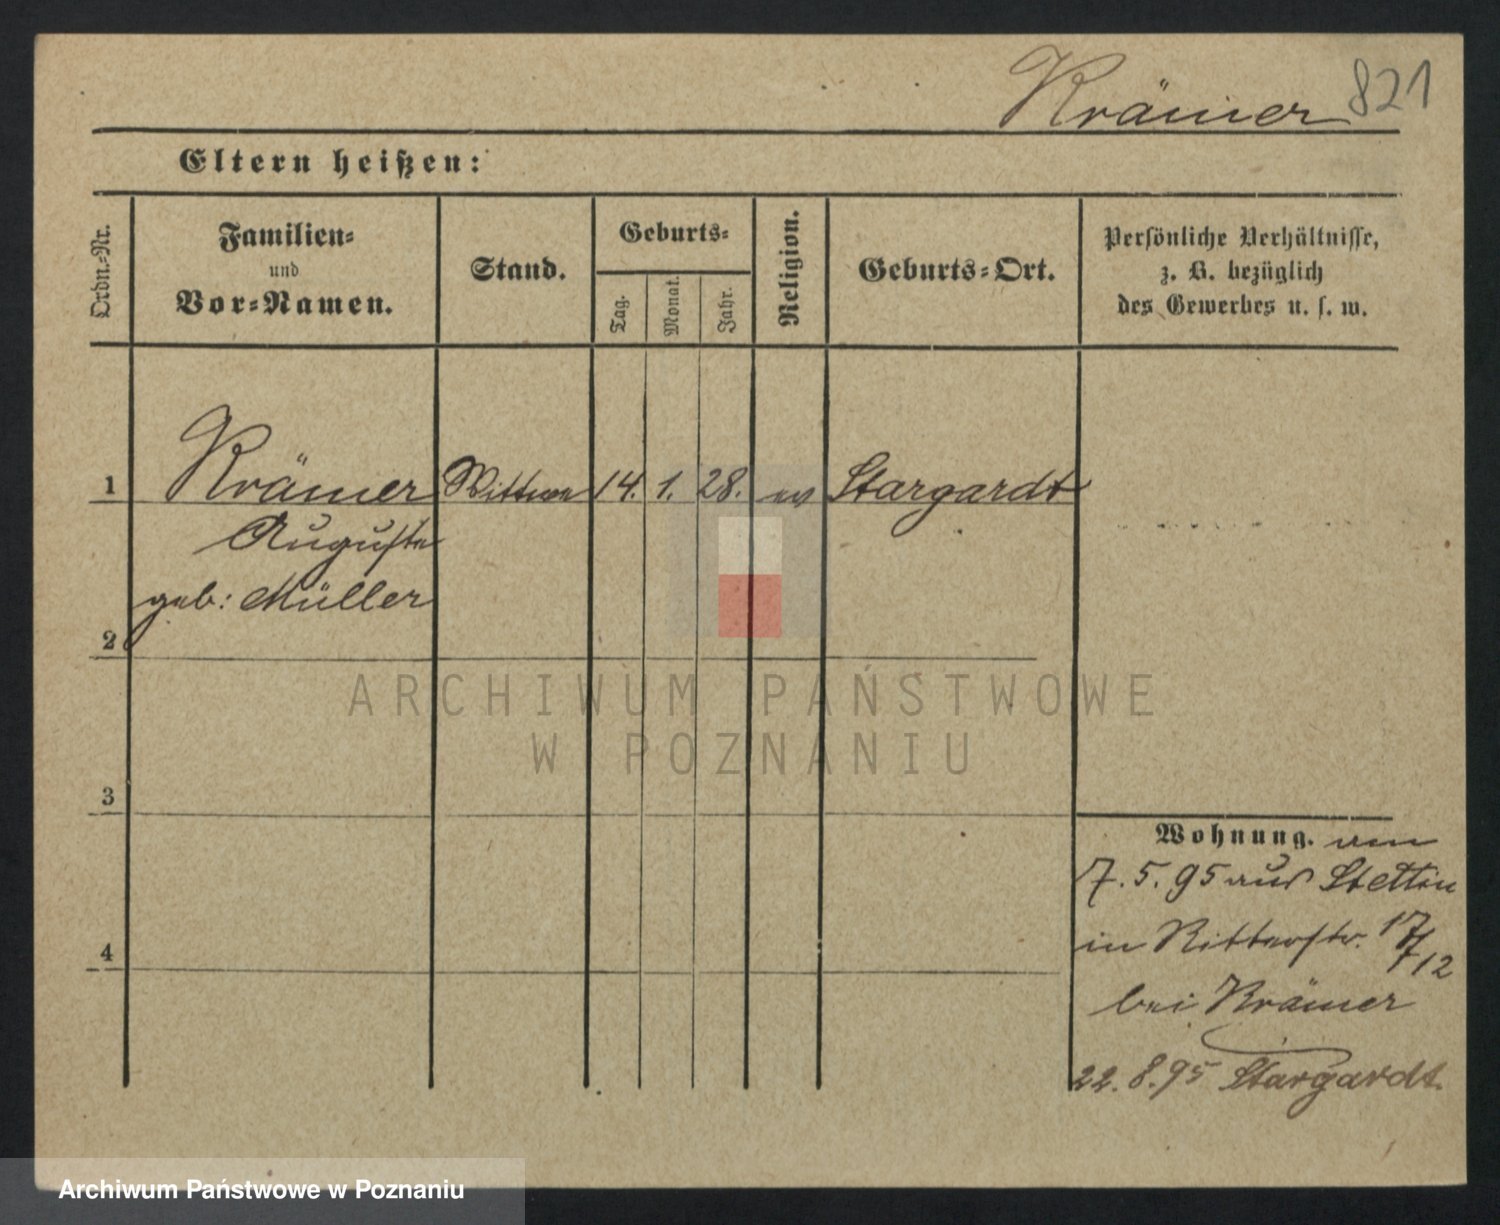 Krämer 821
Eltern heißen:
Ordn.-Nr.
Familien-
und
Vor-Namen.
Stand.
Geburts-
Tag.
Monat.
Jahr.
Religion.
Geburts-Ort.
Persönliche Verhältnisse,
z. B. bezüglich
des Gewerbes u. s. w.
1 Krämer Wittwe 14. 1. 28. ev Stargardt
Auguste
geb: Müller
2
ARCHIWUM PAŃSTWOWE
W POZNANIU
3
Wohnung. am
7. 5. 95 aus Stettin
in Ritterstr. 17/
/12
4
bei Krämer
22. 8. 95 Stargardt.
Archiwum Państwowe w Poznaniu